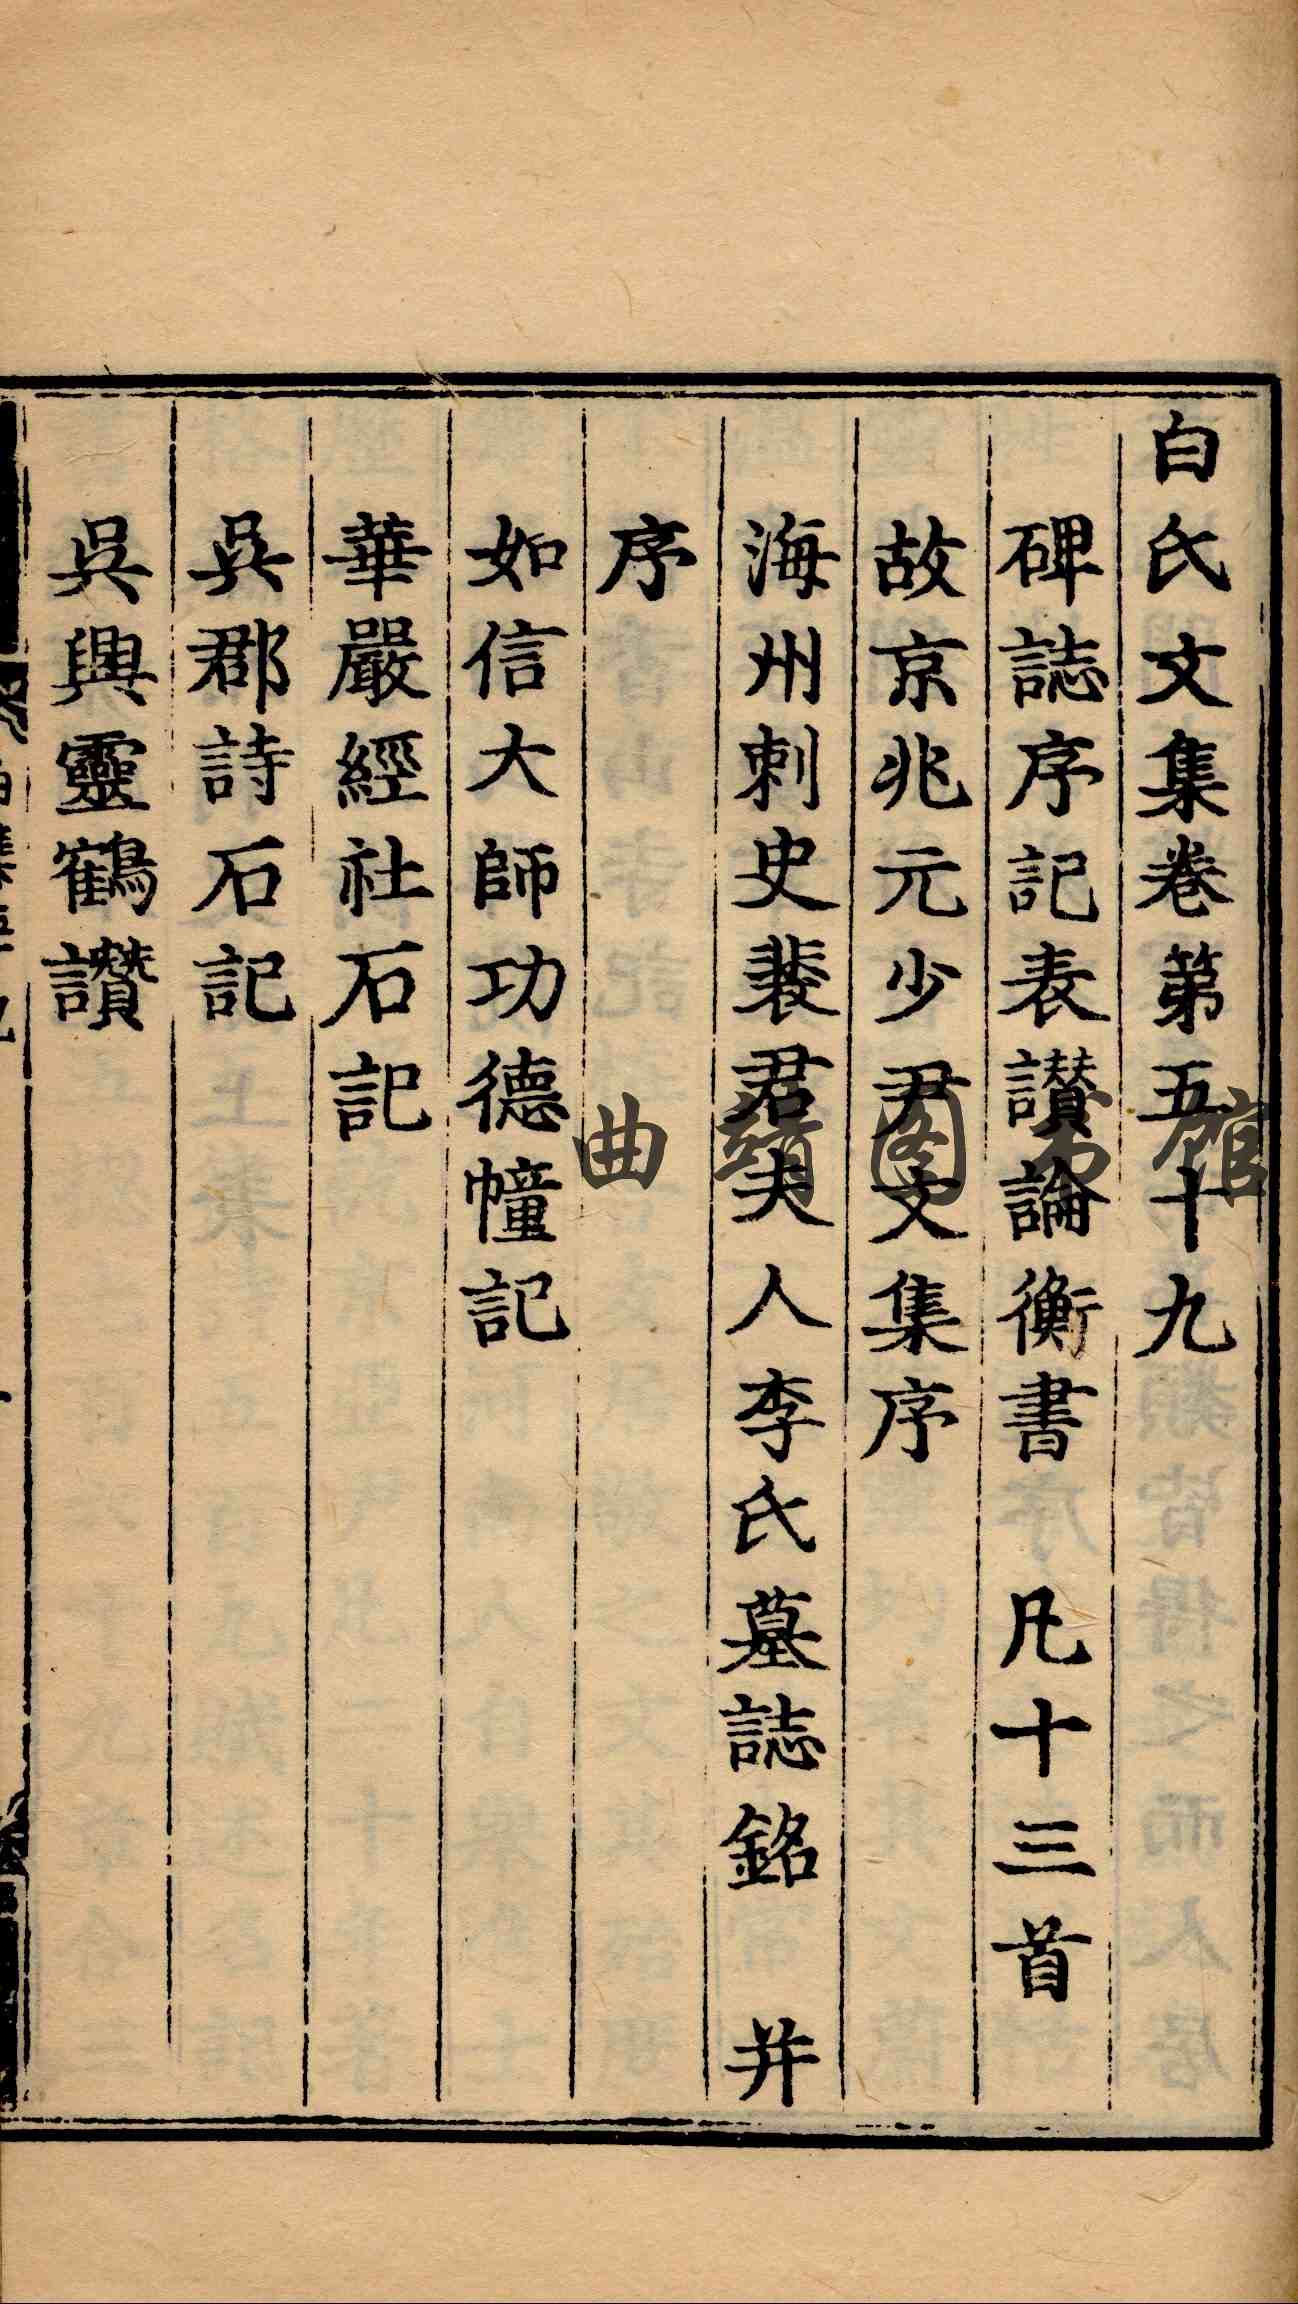 白氏文集卷第五十九
碑誌序記表讃論衡書　凡十三首
故京兆元少尹文集序
海州刺史裴君夫人李氏墓誌銘　并
序
如信大師功德幢記
華嚴經社石記
吳郡詩石記
吳興靈鶴讃